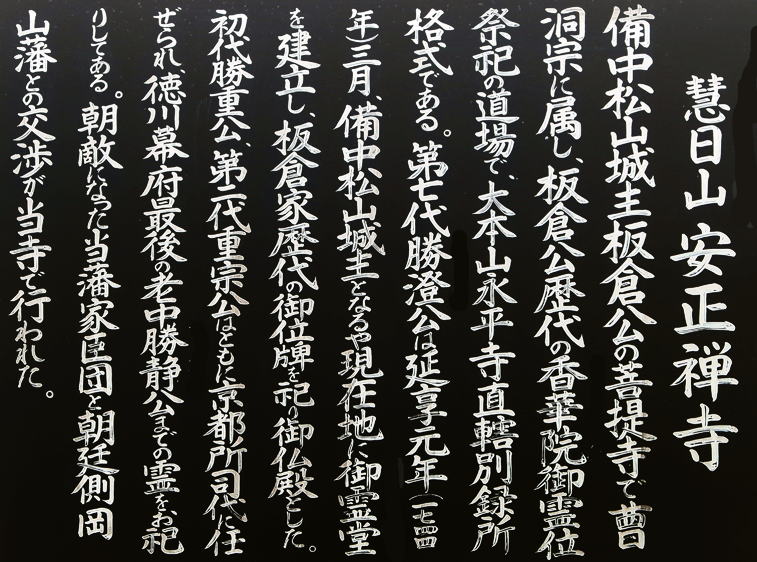 慧日山 安正禅寺
備中松山城主板倉公の菩提寺で曹
洞宗に属し、板倉公歴代の香華院御霊位
祭祀の道場で、大本山永平寺直轄別録所
格式である。第七代勝澄公は延享元年(一七四四
年)三月、備中松山城主となるや現在地に御霊堂
を建立し、板倉家歴代の御位牌を祀り御仏殿とした。
初代勝重公、第二代重宗公はともに京都所司代に任
ぜられ、徳川幕府最後の老中勝静公までの霊をお祀
りしてある。朝敵になった当藩家臣団と朝廷側岡
山藩との交渉が当寺で行われた。